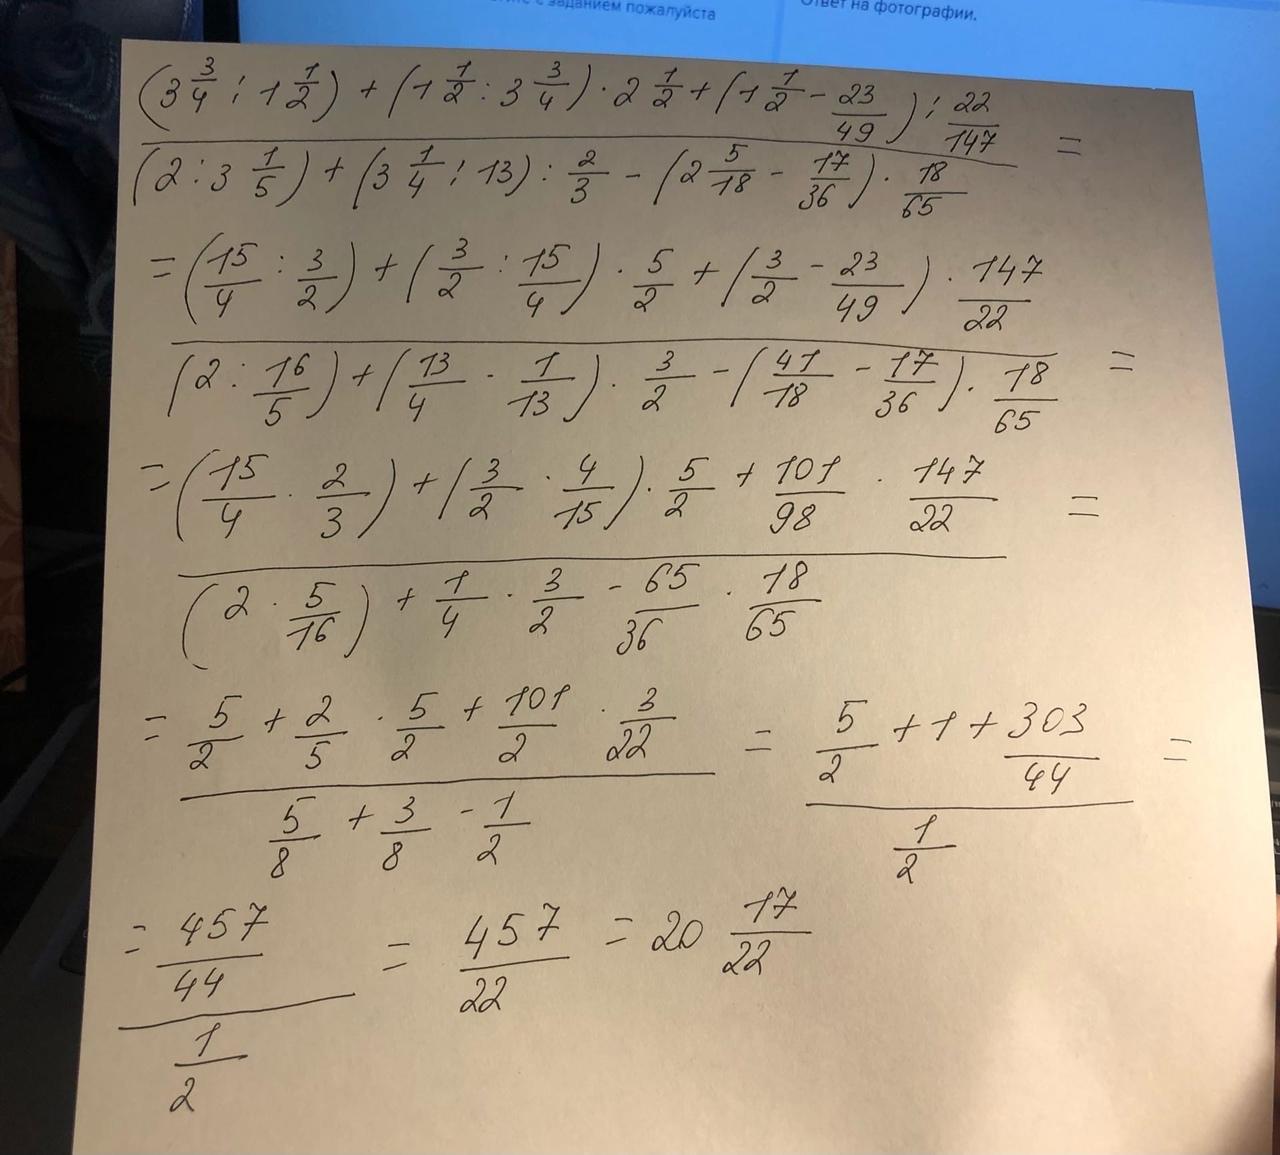 с заданием пожалуйста
Ответ на фотографии.
(3 3/4 : 1 1/2) + (1 1/2 : 3 3/4) · 2 1/2 + (1 1/2 - 23/49) : 22/147 =
(2 : 3 1/5) + (3 1/4 : 13) : 2/3 - (2 5/18 - 17/36) · 18/65
= (15/4 : 3/2) + (3/2 : 15/4) · 5/2 + (3/2 - 23/49) · 147/22
(2 : 16/5) + (13/4 · 1/13) · 3/2 - (41/18 - 17/36) · 18/65 =
= (15/4 · 2/3) + (3/2 · 4/15) · 5/2 + 101/98 · 147/22 =
(2 · 5/16) + 1/4 · 3/2 - 65/36 · 18/65
= 5/2 + 2/5 · 5/2 + 101/2 · 3/22 = 5/2 + 1 + 303/44 =
5/8 + 3/8 - 1/2 1/2
= 457/44 = 457/22 = 20 17/22
1/2